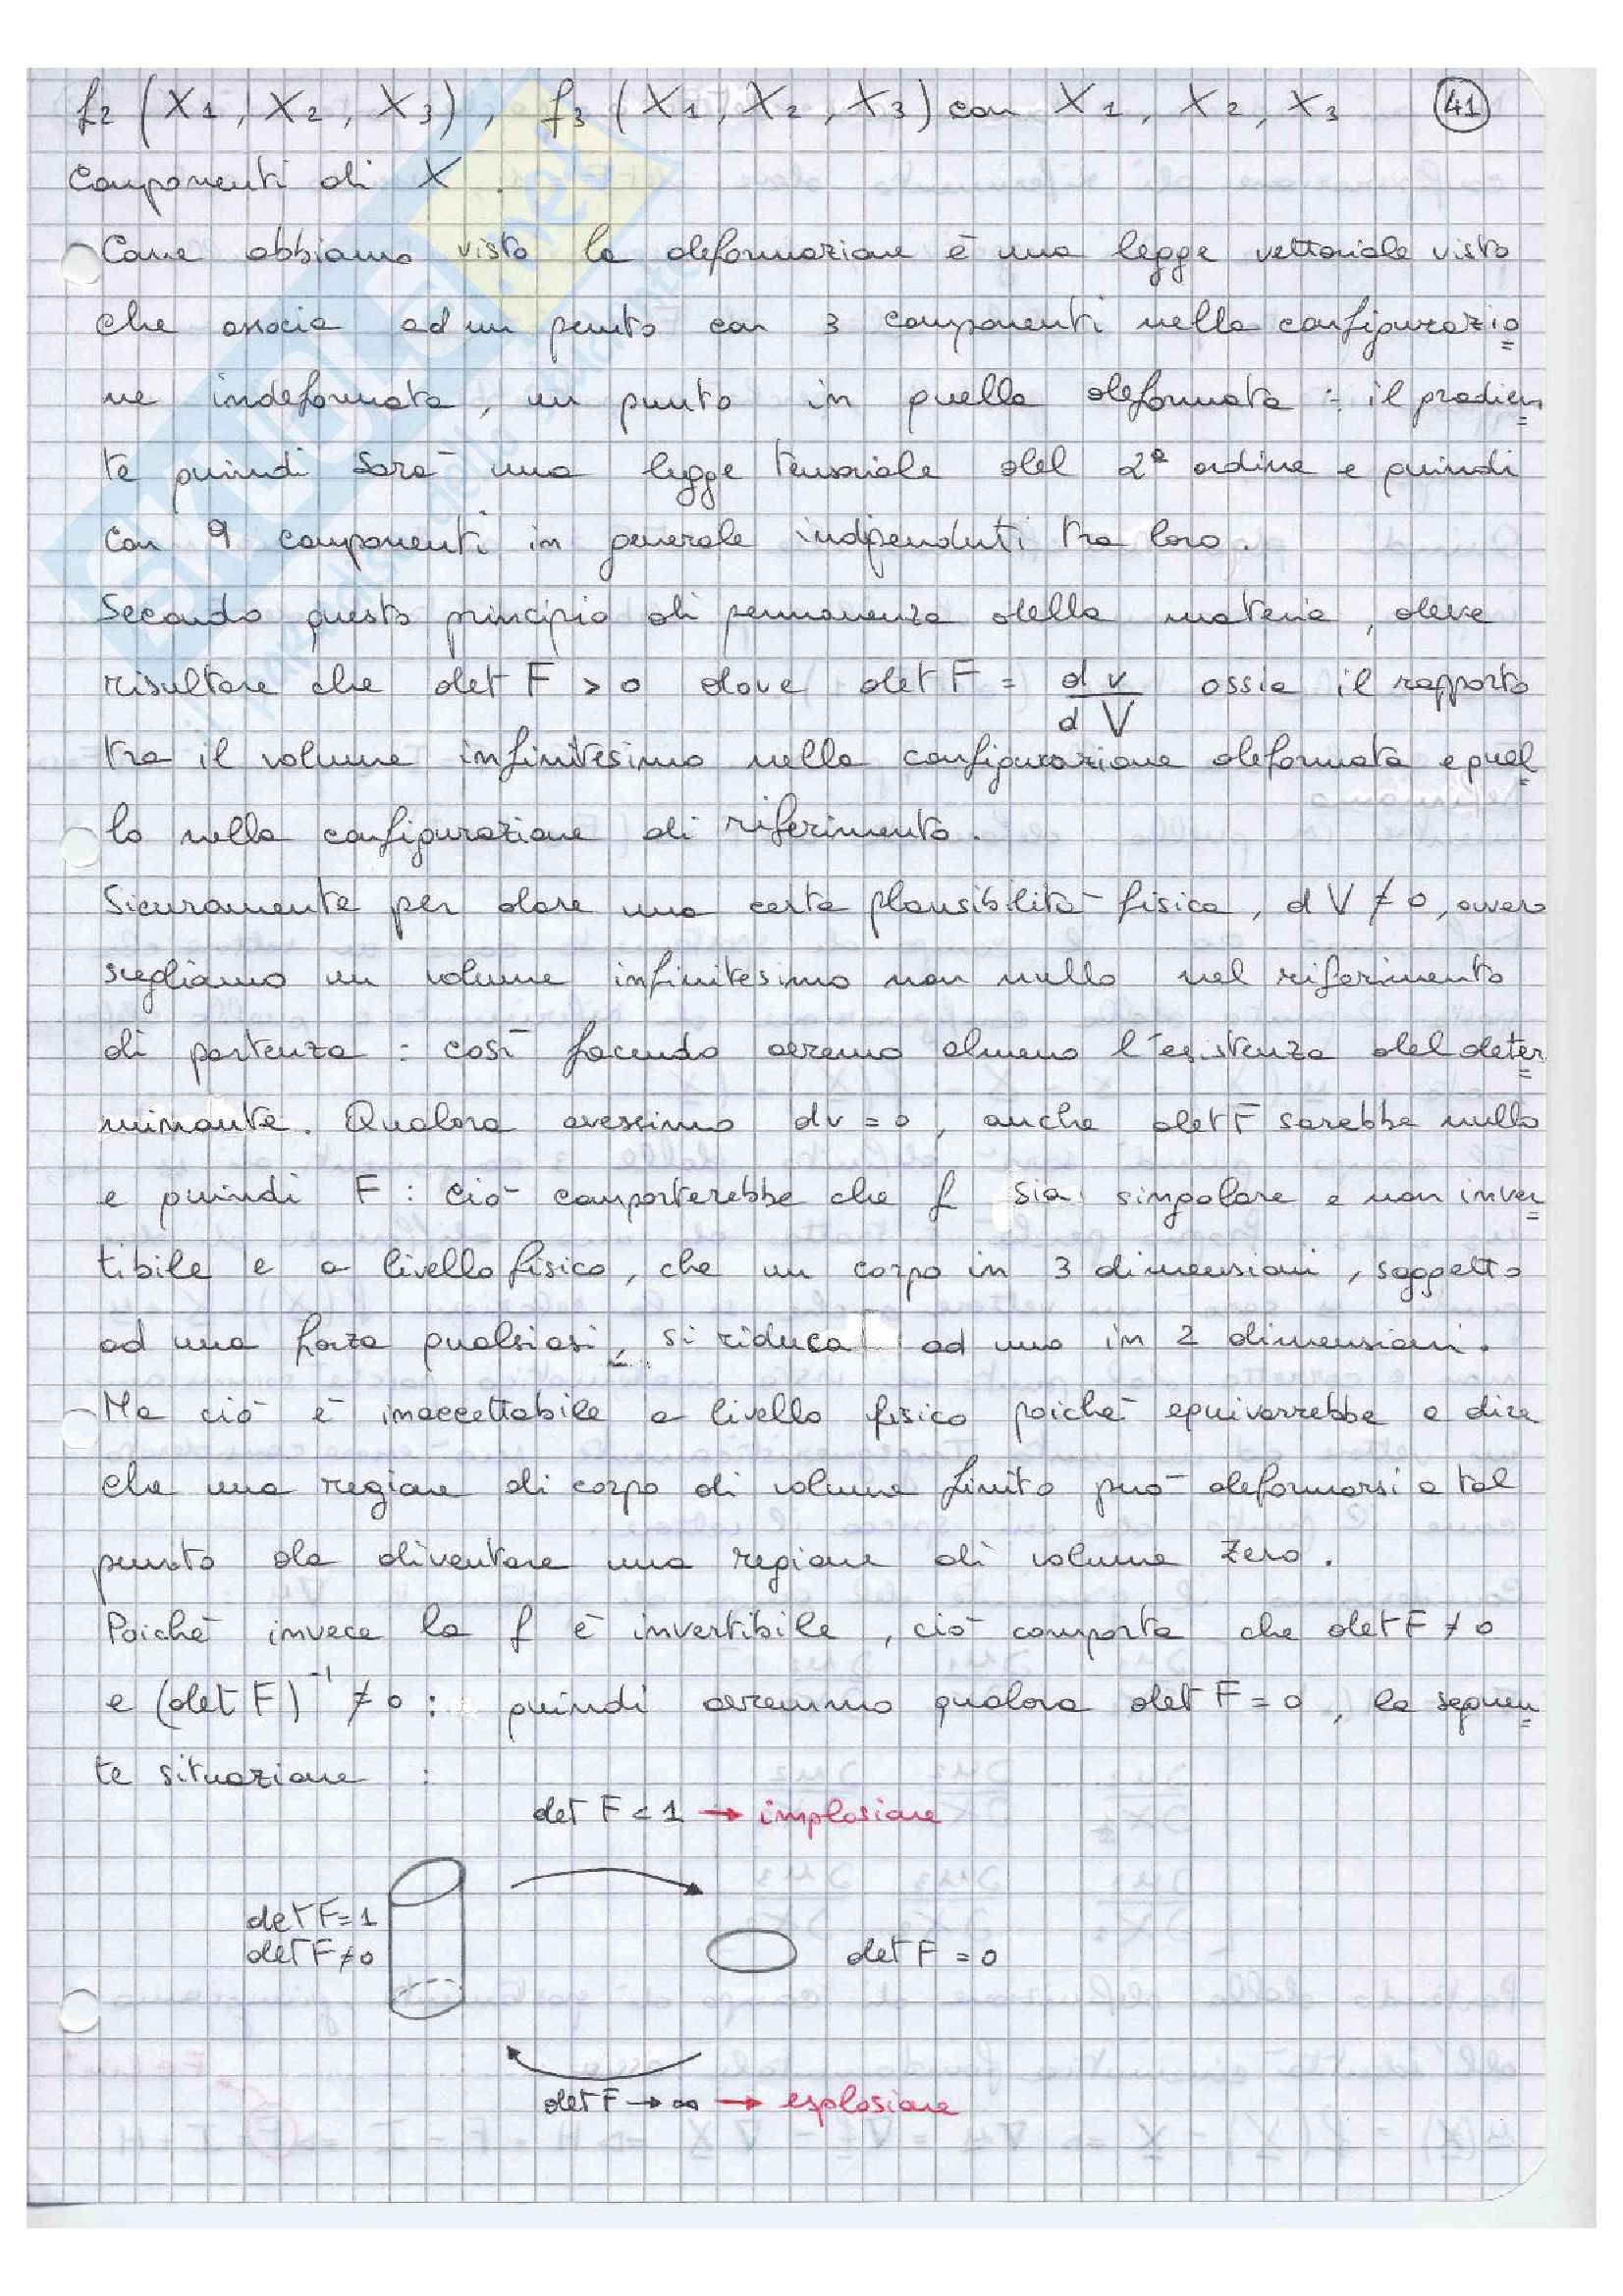 f2 (X1, X2, X3), f3 (X1, X2, X3) con X1, X2, X3 41
Componenti di X.
Come abbiamo visto la deformazione è una legge vettoriale visto
che associa ad un punto con 3 componenti nella configurazio
ne indeformata, un punto in quella deformata : il gradien
te quindi sarà una legge tensoriale del 2° ordine e quindi
con 9 componenti in generale indipendenti tra loro.
Secondo questo principio di permanenza della materia, deve
risultare che det F > 0 dove det F = dv/dV ossia il rapporto
tra il volume infinitesimo nella configurazione deformata e quel
lo nella configurazione di riferimento.
Sicuramente per dare una certa plausibilità fisica, dV ≠ 0, ovvero
scegliamo un volume infinitesimo non nullo nel riferimento
di partenza : così facendo avremo almeno l'esistenza del deter
minante. Qualora avessimo dv = 0, anche det F sarebbe nullo
e quindi F : ciò comporterebbe che f sia singolare e non inver
tibile e a livello fisico, che un corpo in 3 dimensioni, soggetto
ad una forza qualsiasi, si riduca ad uno in 2 dimensioni.
Ma ciò è inaccettabile a livello fisico poiché equivarrebbe a dire
che una regione di corpo di volume finito può deformarsi a tal
punto da diventare una regione di volume zero.
Poiché invece la f è invertibile, ciò comporta che det F ≠ 0
e (det F)⁻¹ ≠ 0 : quindi avremmo qualora det F = 0, la seguen
te situazione :
det F < 1 → implosione
det F = 1
det F ≠ 0
det F = 0
det F → ∞ → esplosione